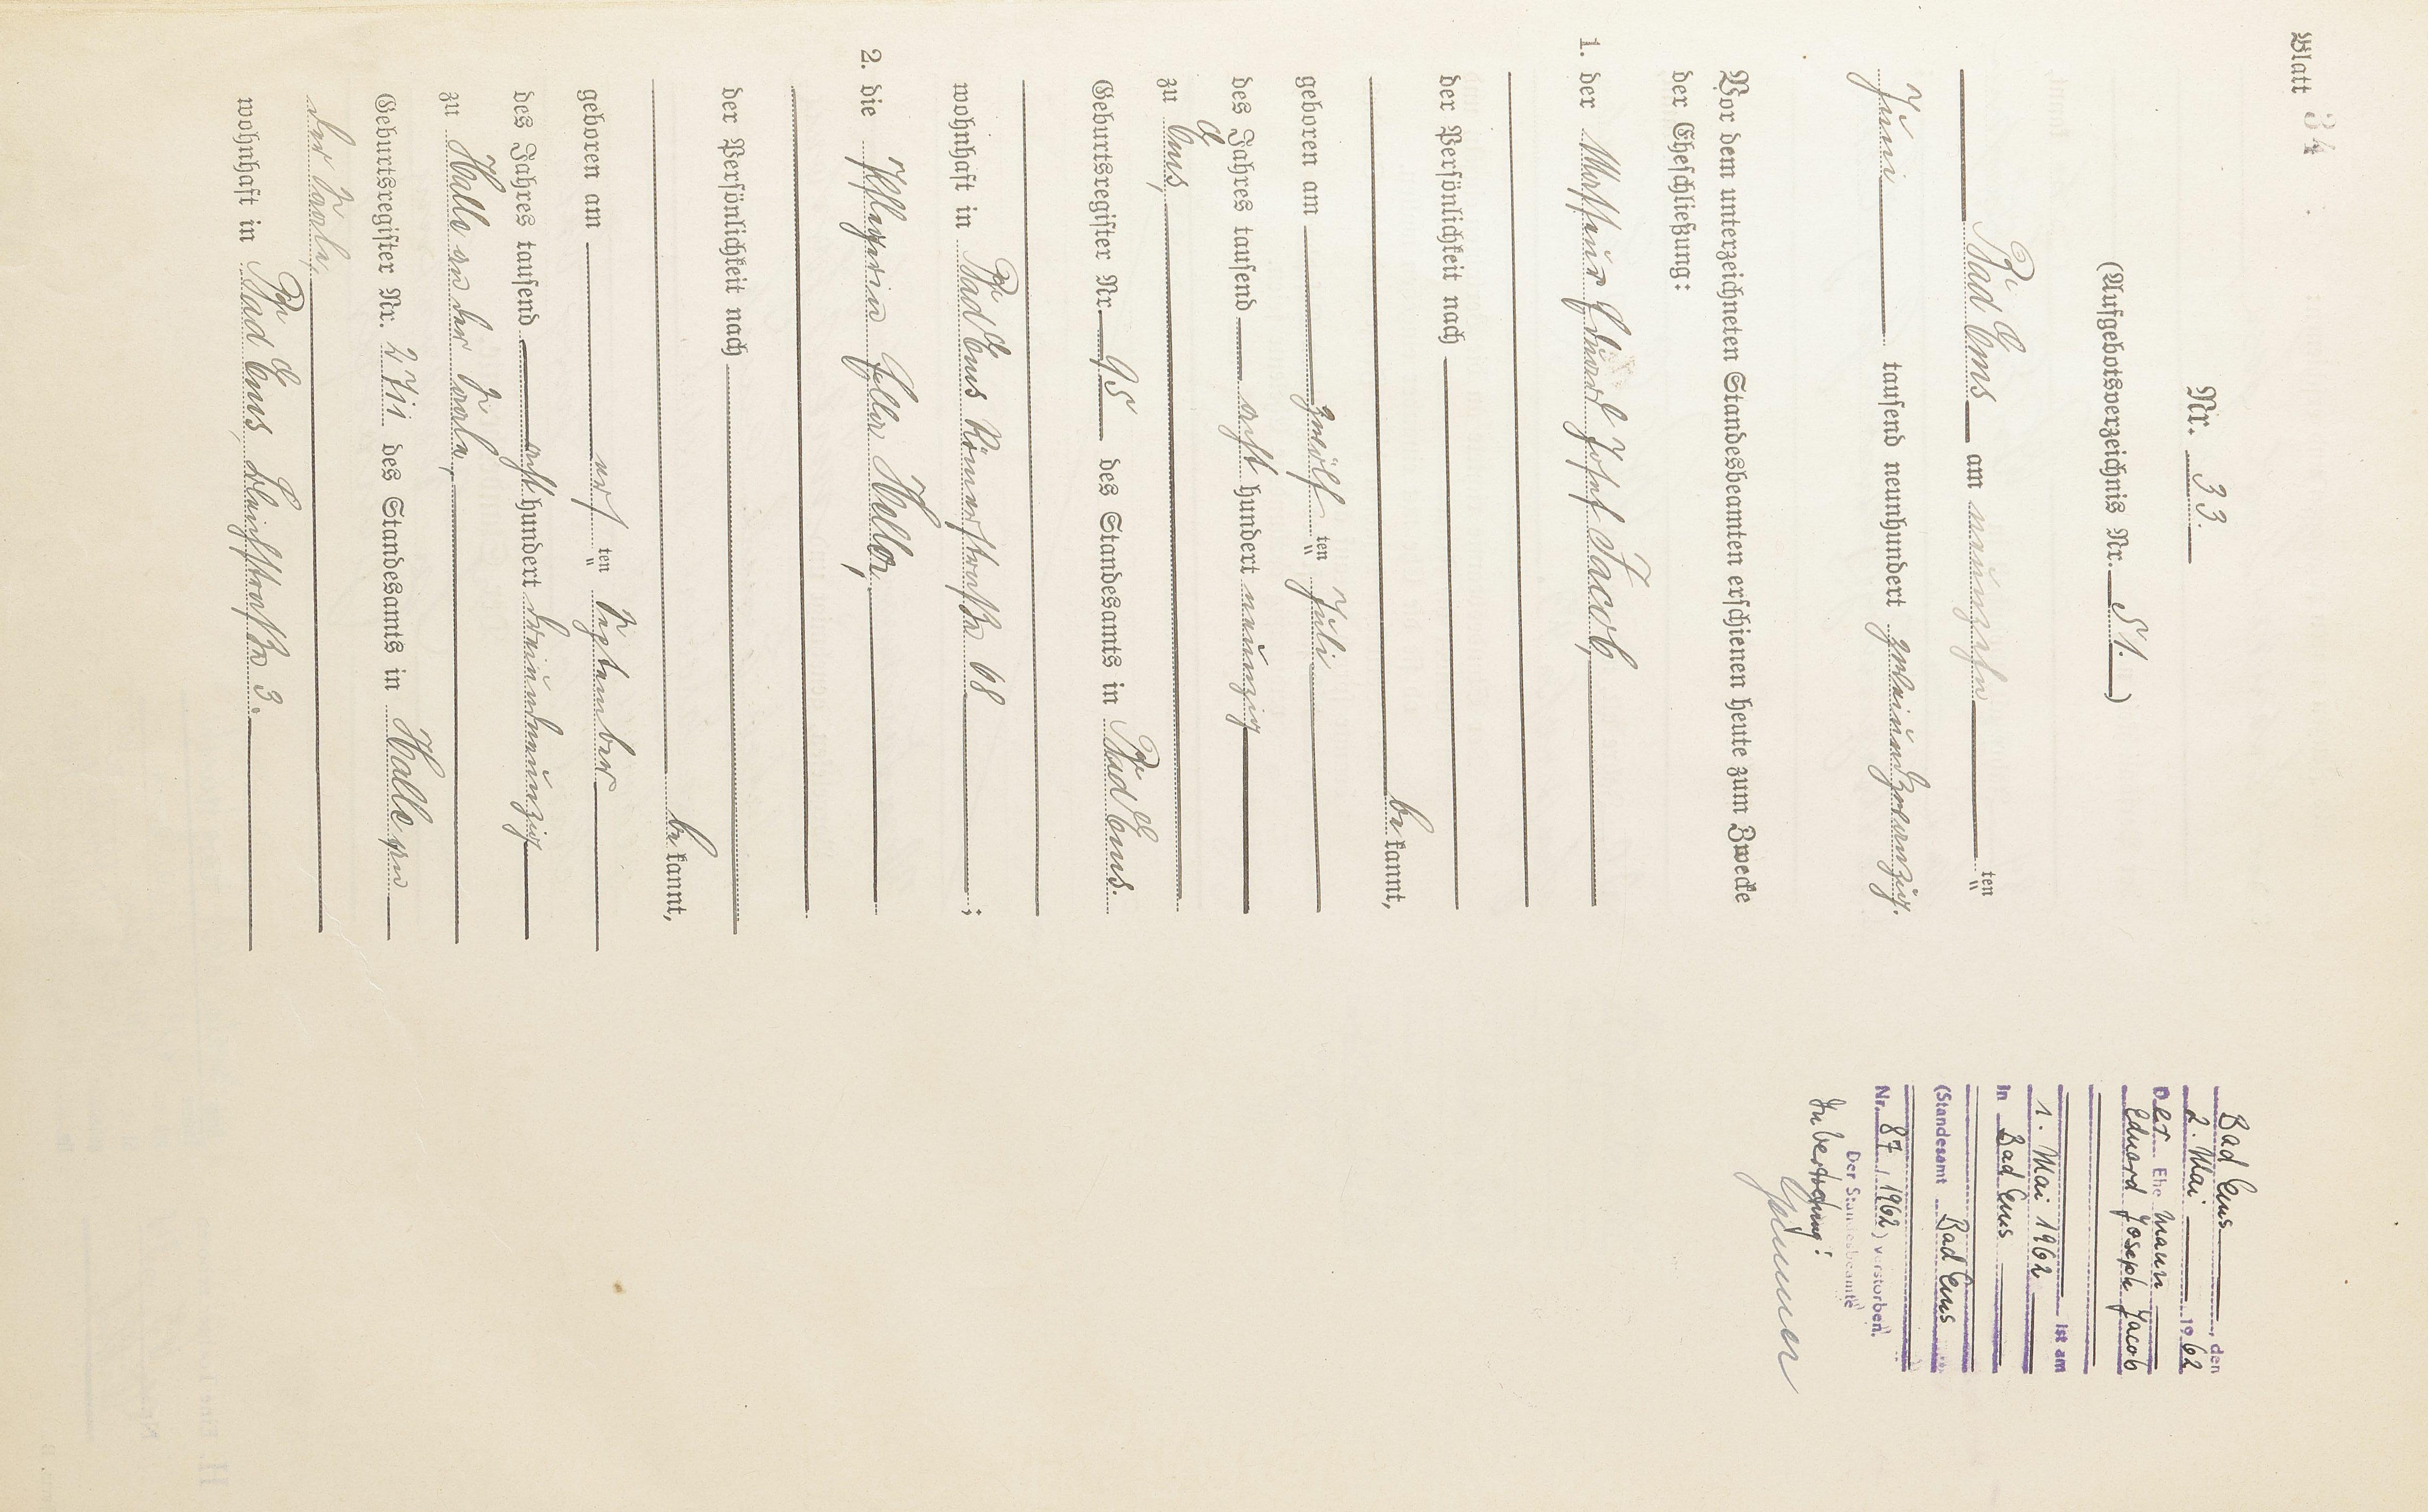 Blatt 34
Nr. 33.
(Aufgebotsverzeichnis Nr. 51.)
Bad Ems am neunzehn ten
Juni tausend neunhundert zweiundzwanzig.
Vor dem unterzeichneten Standesbeamten erschienen heute zum Zwecke
der Eheschließung:
1. der Eduard Josef Jacob,
der Persönlichkeit nach
be kannt,
geboren am zwölf ten Juli
des Jahres tausend acht hundert neunzig
zu Ems,
Geburtsregister Nr. 95 des Standesamts in Bad Ems.
wohnhaft in Bad Ems Römerstraße 48
;
2. die Pflegerin Ella Heller,
der Persönlichkeit nach
be kannt,
geboren am ten September
des Jahres tausend acht hundert dreiundneunzig
zu Halle an der Saale,
Geburtsregister Nr. 2711 des Standesamts in Halle an
der Saale,
wohnhaft in Bad Ems, Bleichstraße 3.
Bad Ems, den
2. Mai 1962
Der Ehe mann
Eduard Joseph Jacob
ist am
1. Mai 1962
in Bad Ems
(Standesamt Bad Ems
Nr. 87 / 1962) verstorben.
Der Standesbeamte
In Vertretung: